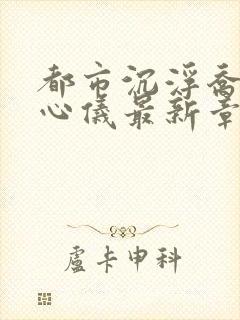 都市沉浮喬
心儀最新章
盧卡申科